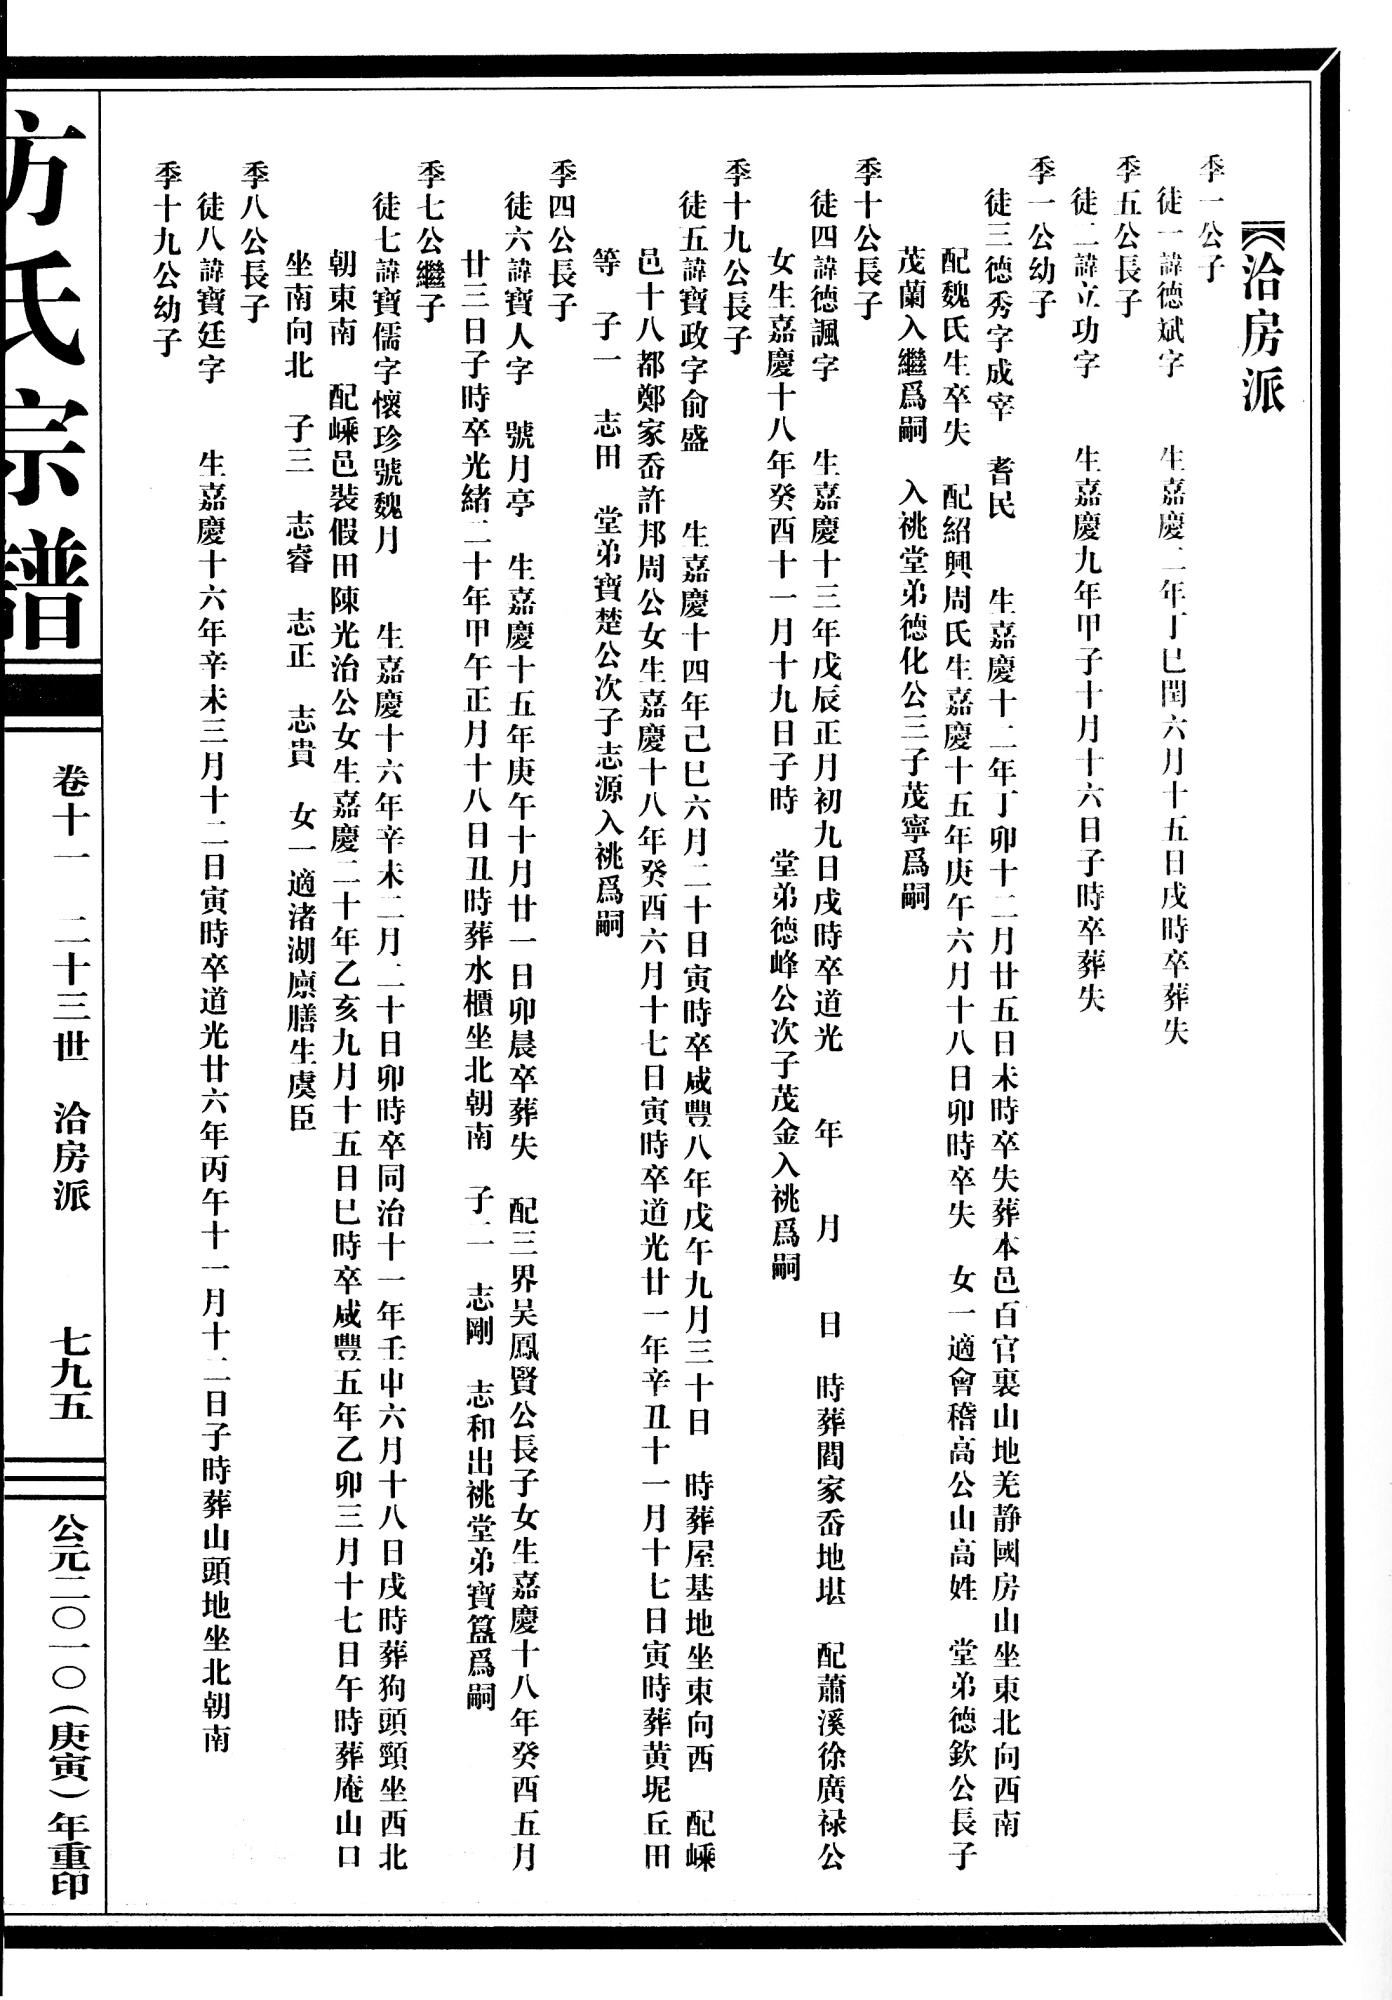 洽房派
季一公子
徒一諱德斌字　生嘉慶二年丁巳閏六月十五日戌時卒葬失
季五公長子
徒二諱立功字　生嘉慶九年甲子十月十六日子時卒葬失
季一公幼子
徒三德秀字成宰　耆民　生嘉慶十二年丁卯十二月廿五日未時卒失葬本邑百官裏山地羌静國房山坐東北向西南
配魏氏生卒失　配紹興周氏生嘉慶十五年庚午六月十八日卯時卒失　女一適會稽高公山高姓　堂弟德欽公長子
茂蘭入繼爲嗣　入祧堂弟德化公三子茂寧爲嗣
季十公長子
徒四諱德諷字　生嘉慶十三年戊辰正月初九日戌時卒道光　年　月　日　時葬閻家岙地堪　配蕭溪徐廣禄公
女生嘉慶十八年癸酉十一月十九日子時　堂弟德峰公次子茂金入祧爲嗣
季十九公長子
徒五諱寶政字俞盛　生嘉慶十四年己巳六月二十日寅時卒咸豐八年戊午九月三十日　時葬屋基地坐東向西　配嵊
邑十八都鄭家岙許邦周公女生嘉慶十八年癸酉六月十七日寅時卒道光廿一年辛丑十一月十七日寅時葬黄坭丘田
等　子一　志田　堂弟寶楚公次子志源入祧爲嗣
季四公長子
徒六諱寶人字　號月亭　生嘉慶十五年庚午十月廿一日卯晨卒葬失　配三界吴鳳賢公長子女生嘉慶十八年癸酉五月
廿三日子時卒光緒二十年甲午正月十八日丑時葬水櫃坐北朝南　子二　志剛　志和出祧堂弟寶簋爲嗣
季七公繼子
徒七諱寶儒字懷珍號魏月　生嘉慶十六年辛未二月二十日卯時卒同治十一年壬申六月十八日戌時葬狗頭頸坐西北
朝東南　配嵊邑裝假田陳光治公女生嘉慶二十年乙亥九月十五日巳時卒咸豐五年乙卯三月十七日午時葬庵山口
坐南向北　子三　志睿　志正　志貴　女一適渚湖廪膳生虞臣
季八公長子
徒八諱寶廷字　生嘉慶十六年辛未三月十二日寅時卒道光廿六年丙午十一月十二日子時葬山頭地坐北朝南
季十九公幼子
方氏宗譜
卷十一　二十三世　洽房派　七九五
公元二〇一〇(庚寅)年重印